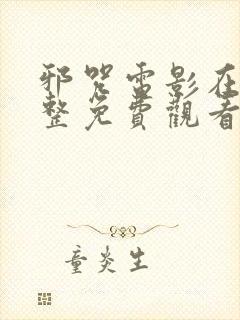 邪咒雷影在
整免費觀看
童炎生